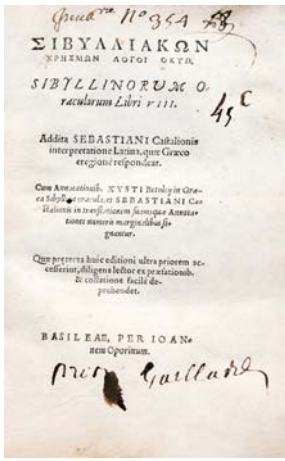 N° 354
ΣΙΒΥΛΛΙΑΚΩΝ
ΧΡΗΣΜΩΝ ΛΟΓΟΙ ΟΚΤΩ.
SIBYLLINORVM O-
raculorum Libri VIII.
45 C
Addita SEBASTIANI Castalionis
interpretatione Latina, quæ Græco
eregione respondeat.
Cum Annotationib. XYSTI Betuleij in Græ-
ca Sibyllina oracula, et SEBASTIANI Ca-
stalionis in translationem suam: quæ Annota-
tiones numeris marginalibus si-
gnantur.
Quæ præterea huic editioni ultra priorem ac-
cesserint, diligens lector ex præfationib.
& collatione facile de-
prehendet.
BASILEAE, PER IOAN-
nem Oporinum.